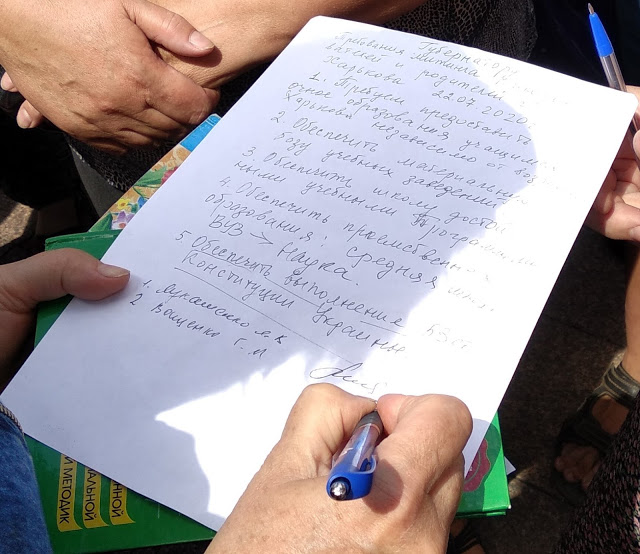 Губернатору
Требования митинга
и родителей
Харькова 22.07 2020
1. Требуем предоставить
очное образования учащимся
Харькова независимо от
2. Обеспечить материальную
базу учебных заведений
3. Обеспечить школу
ными учебными Программами
4. Обеспечить
образования: средняя
ВУЗ > Наука.
5. Обеспечить выполнение 53 ст
Конституции Украины
1. Лукашенко
2 Ващенко Г. М
ННОЙ
АЛЬНОЙ
МЕТОДИК